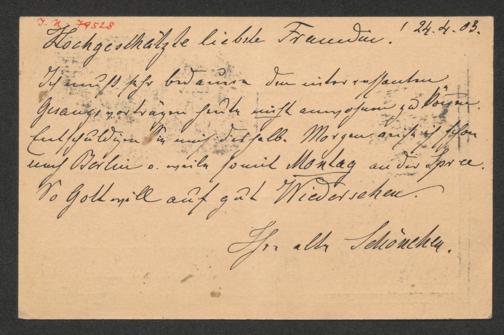 I. N. 79528
! 24.4.03.
Hochgeschätzte liebste Freundin.
Ich muß sehr bedauern den interessanten
Gesangsvorträgen heute nicht anwohnen zu können.
Entschuldigen Sie mich deshalb. Morgen muß ich schon
nach Berlin u. weile somit Montag an der Spree.
So Gott will auf gut Wiedersehen.
Ihr alter Schönchen.